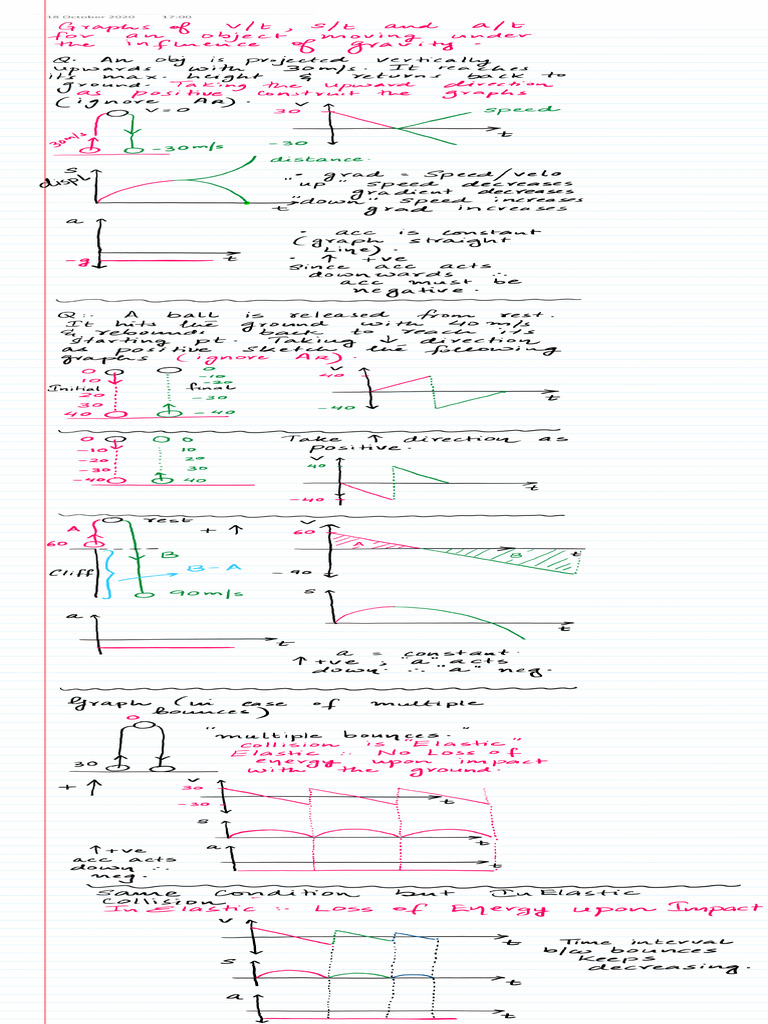 18 October 2020 17:00
Graphs of v/t, s/t and a/t
for an object moving under
the influence of gravity.
Q. An obj is projected vertically
upwards with 30m/s. It reaches
its max. height & returns back to
ground. Taking the upward direction
as positive construct the graphs
(ignore AR).
V=0
30m/s
-30m/s
V
30
-30
speed
t
s
displ
distance.
t
- grad = Speed/velo
"up" speed decreases
gradient decreases
"down" speed increases
grad increases
a
-g
t
- acc is constant
(graph straight
Line).
- ↑ +ve
Since acc acts
downwards ∴
acc must be
negative.
Q:- A ball is released from rest.
It hits the ground with 40m/s
& rebounds back to reach its
starting pt. Taking ↓ direction
as positive sketch the following
graphs (ignore AR).
0 0
10 -10
20 -20
30 -30
40 -40
Initial
final
V
40
-40
t
0 0
-10 10
-20 20
-30 30
-40 40
Take ↑ direction as
positive.
V
40
-40
t
A
rest
+ ↑
60
B
B-A
Cliff
90m/s
V
60
A
B
t
-90
s
t
a
t
a = constant.
↑ +ve, "a" acts
down ∴ "a" neg.
Graph (in case of multiple
bounces)
0
30
+ ↑
"multiple bounces."
Collision is "Elastic"
Elastic :- No Loss of
energy upon impact
with the ground.
V
30
-30
t
s
t
a
t
↑ +ve
acc acts
down ∴
neg.
Same Condition but InElastic
Collision
InElastic :- Loss of Energy upon Impact
V
t
s
t
a
t
Time interval
b/w bounces
keeps
decreasing.